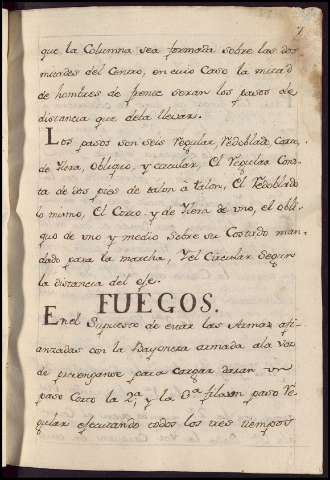 7
que la Columna sea formada sobre las dos
mitades del Centro, en cuio Caso la mitad
de hombres de frente seran los pasos de
distancia que deta llevar.
Los pasos son seis Regular, Redoblado, Corto,
de Hiera, Obliquo, y circular, El Regular Cons
ta de dos pies de talon à talon, El Redoblado
lo mismo, El Corto y de Hiera de uno, el obli
quo de uno y medio sobre su Costado man
dado para la marcha, Y el Circular Segun
la distancia del eje.
FUEGOS.
En el Supuesto de estar las Armas afi
anzadas con la Bayoneta armada ala Voz
de prevenganse para cargar daran un
paso Corto la 2ª y la 3ª fila un paso Re
gular ejecutando todos los tres tiempos